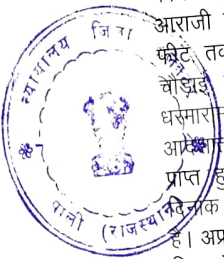 न्यायालय जिला
पाली (राजस्थान)
आराजी
फीट तव
चौड़ाई
धरमारी
प्राप्त ह
दिनांक
है। अप्र